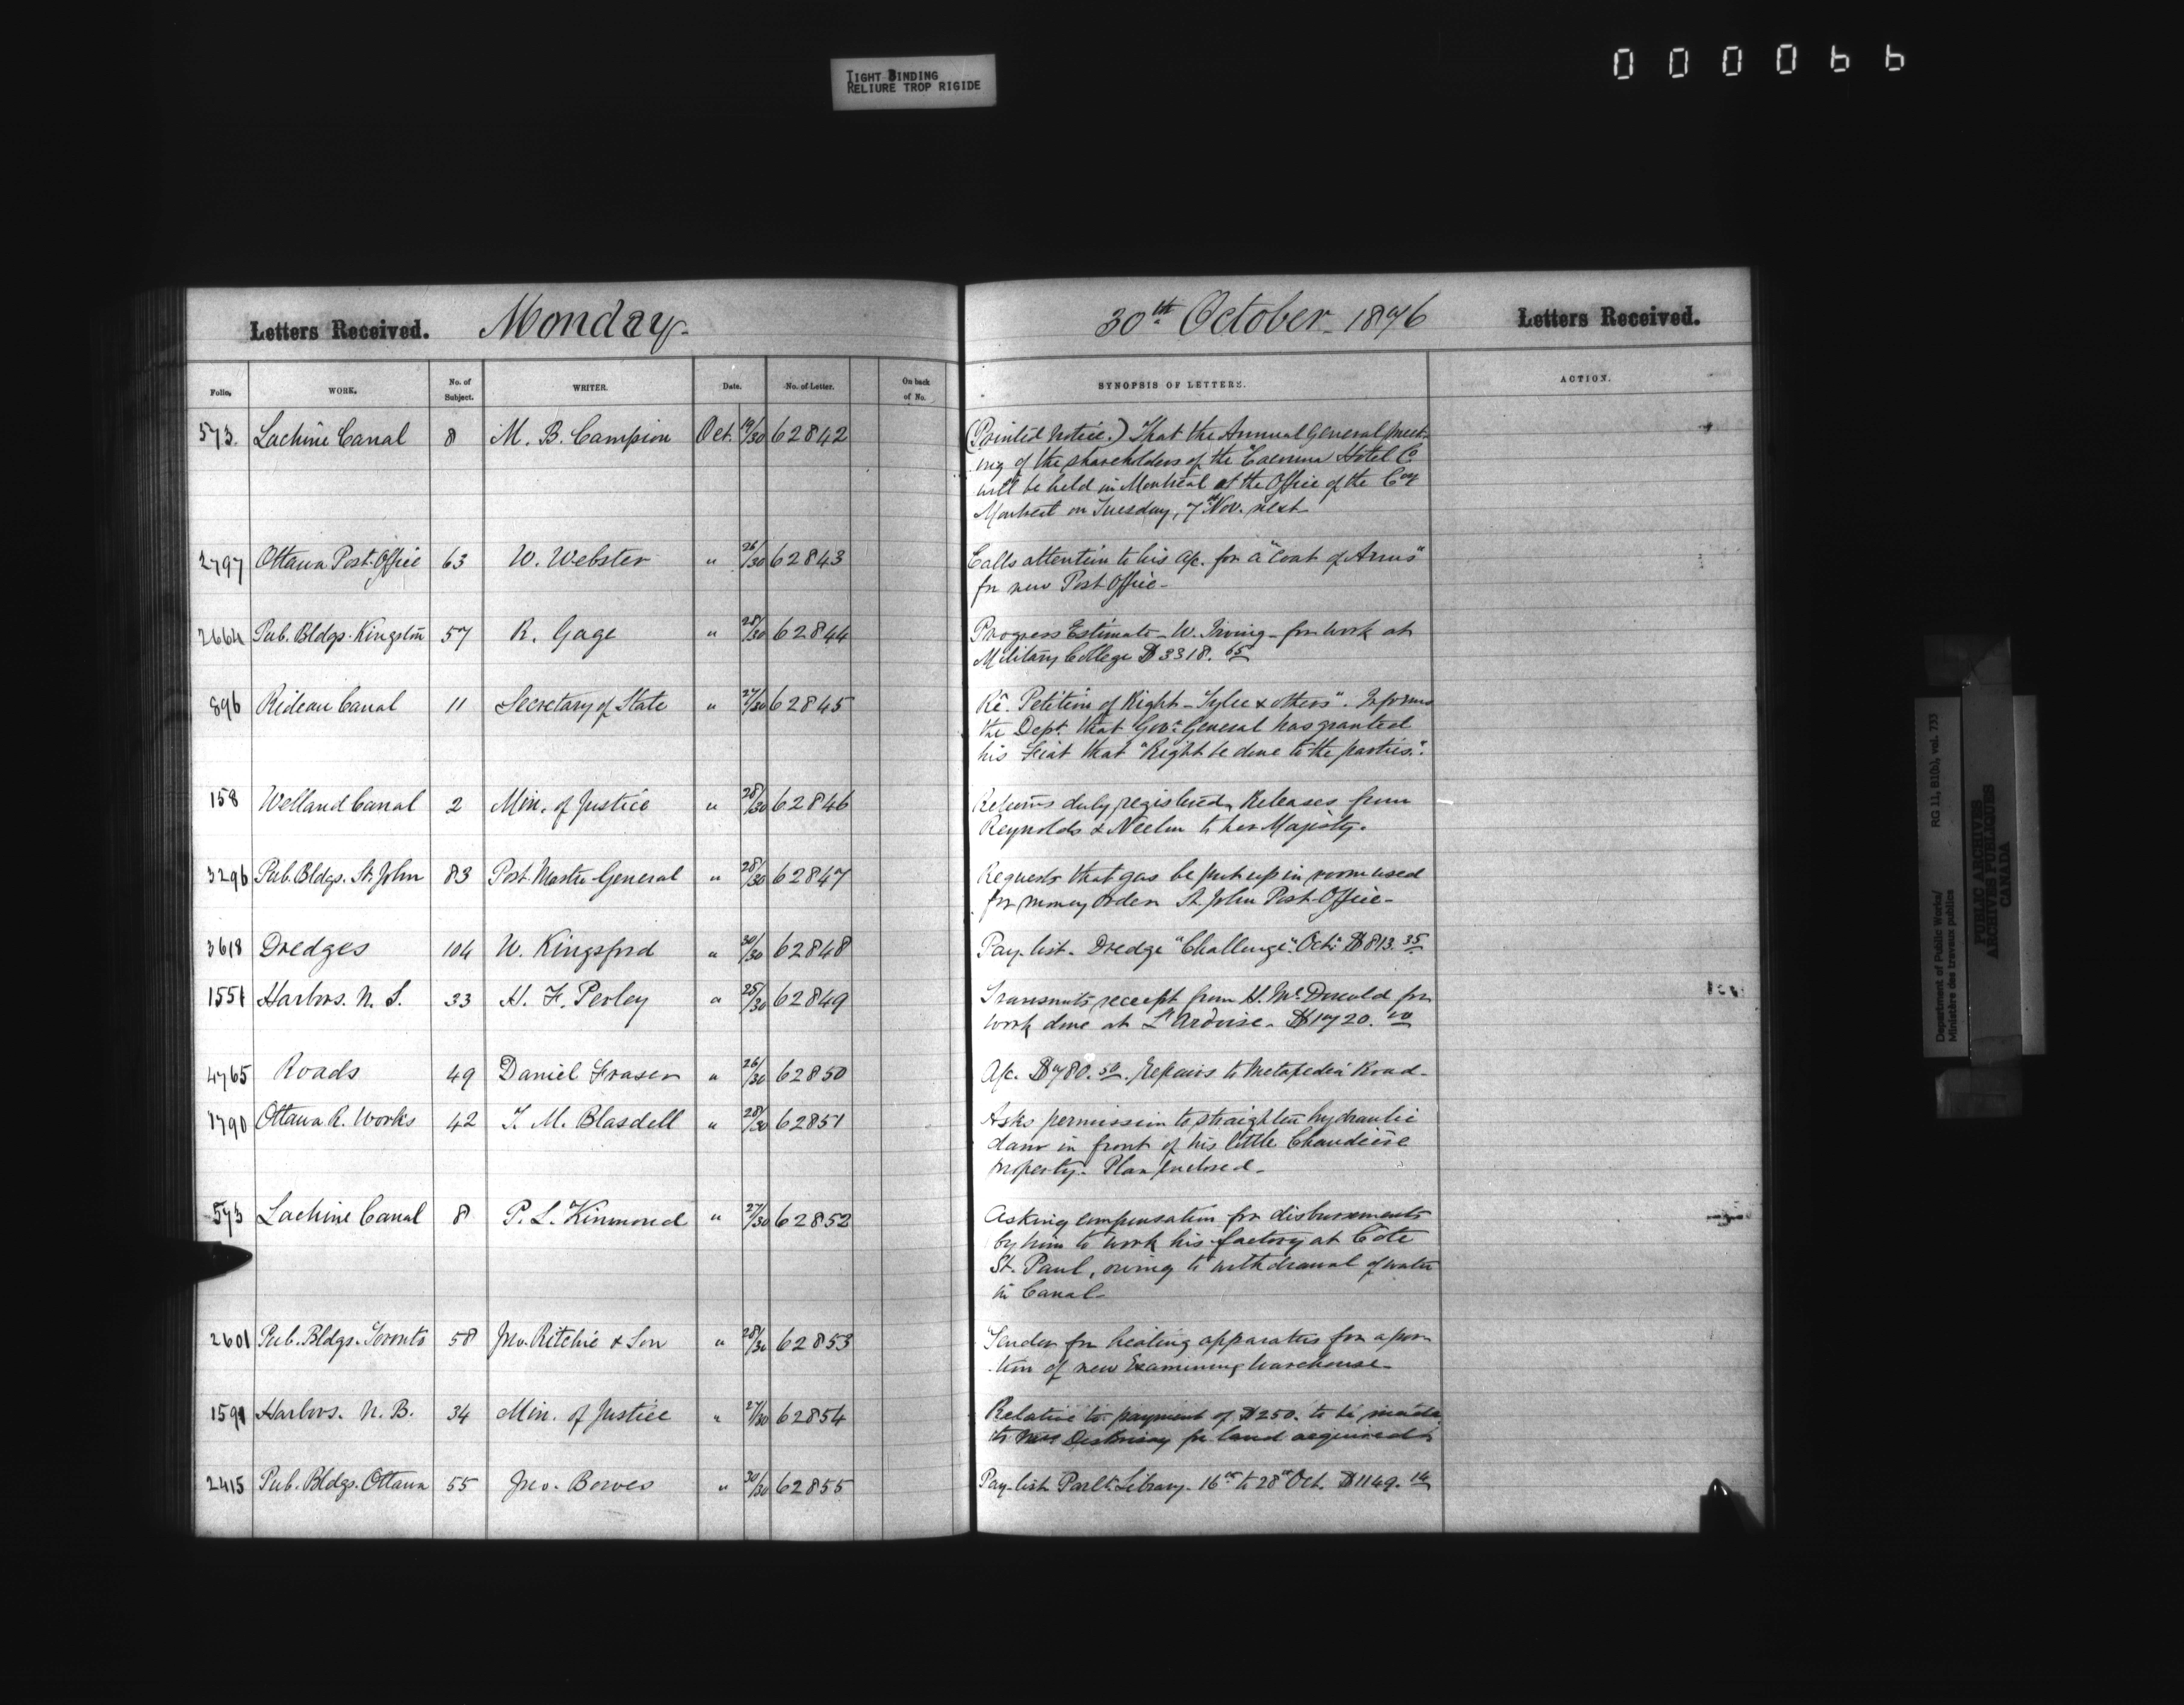 TIGHT BINDING
RELIURE TROP RIGIDE
000066
Letters Received. Monday.
30th October 1876 Letters Received.
Folio. WORK. No. of Subject. WRITER. Date. No. of Letter. On back of No. SYNOPSIS OF LETTERS. ACTION.
573. Lachine Canal 8 M. B. Campion Oct. 19/30 62842 (Printed Notice.) That the Annual General Meet-
ing of the shareholders of the Hotel Co
will be held in Montreal at the Office of the Coy
Montreal on Tuesday, 7th Nov. next
2797 Ottawa Post-Office 63 W. Webster " 26/30 62843 Calls attention to his a/c. for a "Coat of Arms"
for new Post Office-
2664 Pub. Bldgs. Kingston 57 R. Gage " 28/30 62844 Progress Estimate - W. Irving - for work at
Military College $3318.65
896 Rideau Canal 11 Secretary of State " 27/30 62845 Re. Petition of Right - "Tylee & others". Informs
the Dept. that Govr. General has granted
his Fiat that "Right be done to the parties."
158 Welland Canal 2 Min. of Justice " 28/30 62846 Returns duly registered, Releases from
Reynolds & Neelon to her Majesty.
3296 Pub. Bldgs. St. John 83 Post Master General " 28/30 62847 Requests that gas be put up in room used
for money orders St. John Post-Office-
3618 Dredges 104 W. Kingsford " 30/30 62848 Pay-list - Dredge "Challenge". Oct. $813.35
1551 Harbors. N. S. 33 H. F. Perley " 25/30 62849 Transmits receipt from H. McDonald for
work done at L'Ardoise - $1720.00
4765 Roads 49 Daniel Fraser " 26/30 62850 A/c. $780.50. Repairs to Metapedia Road-
1790 Ottawa R. Works 42 T. M. Blasdell " 28/30 62851 Asks permission to straighten hydraulic
dam in front of his little Chaudière
property. Plan enclosed-
573 Lachine Canal 8 P. L. Kinmond " 27/30 62852 Asking compensation for disbursements
by him to work his factory at Côte
St. Paul, owing to withdrawal of water
in Canal-
2601 Pub. Bldgs. Toronto 58 Jno. Ritchie & Son " 28/30 62853 Tender for heating apparatus for a por-
tion of new Examining Warehouse-
1591 Harbors. N. B. 34 Min. of Justice " 27/30 62854 Relative to payment of $250. to be made
to Mrs DesBrisay for land acquired
2415 Pub. Bldgs. Ottawa 55 Jno. Bowes " 30/30 62855 Pay-list Parlt. Library - 16th to 28th Oct. $1149.14
Department of Public Works/ RG 11, B1(b), vol. 733
Ministère des travaux publics
PUBLIC ARCHIVES
ARCHIVES PUBLIQUES
CANADA